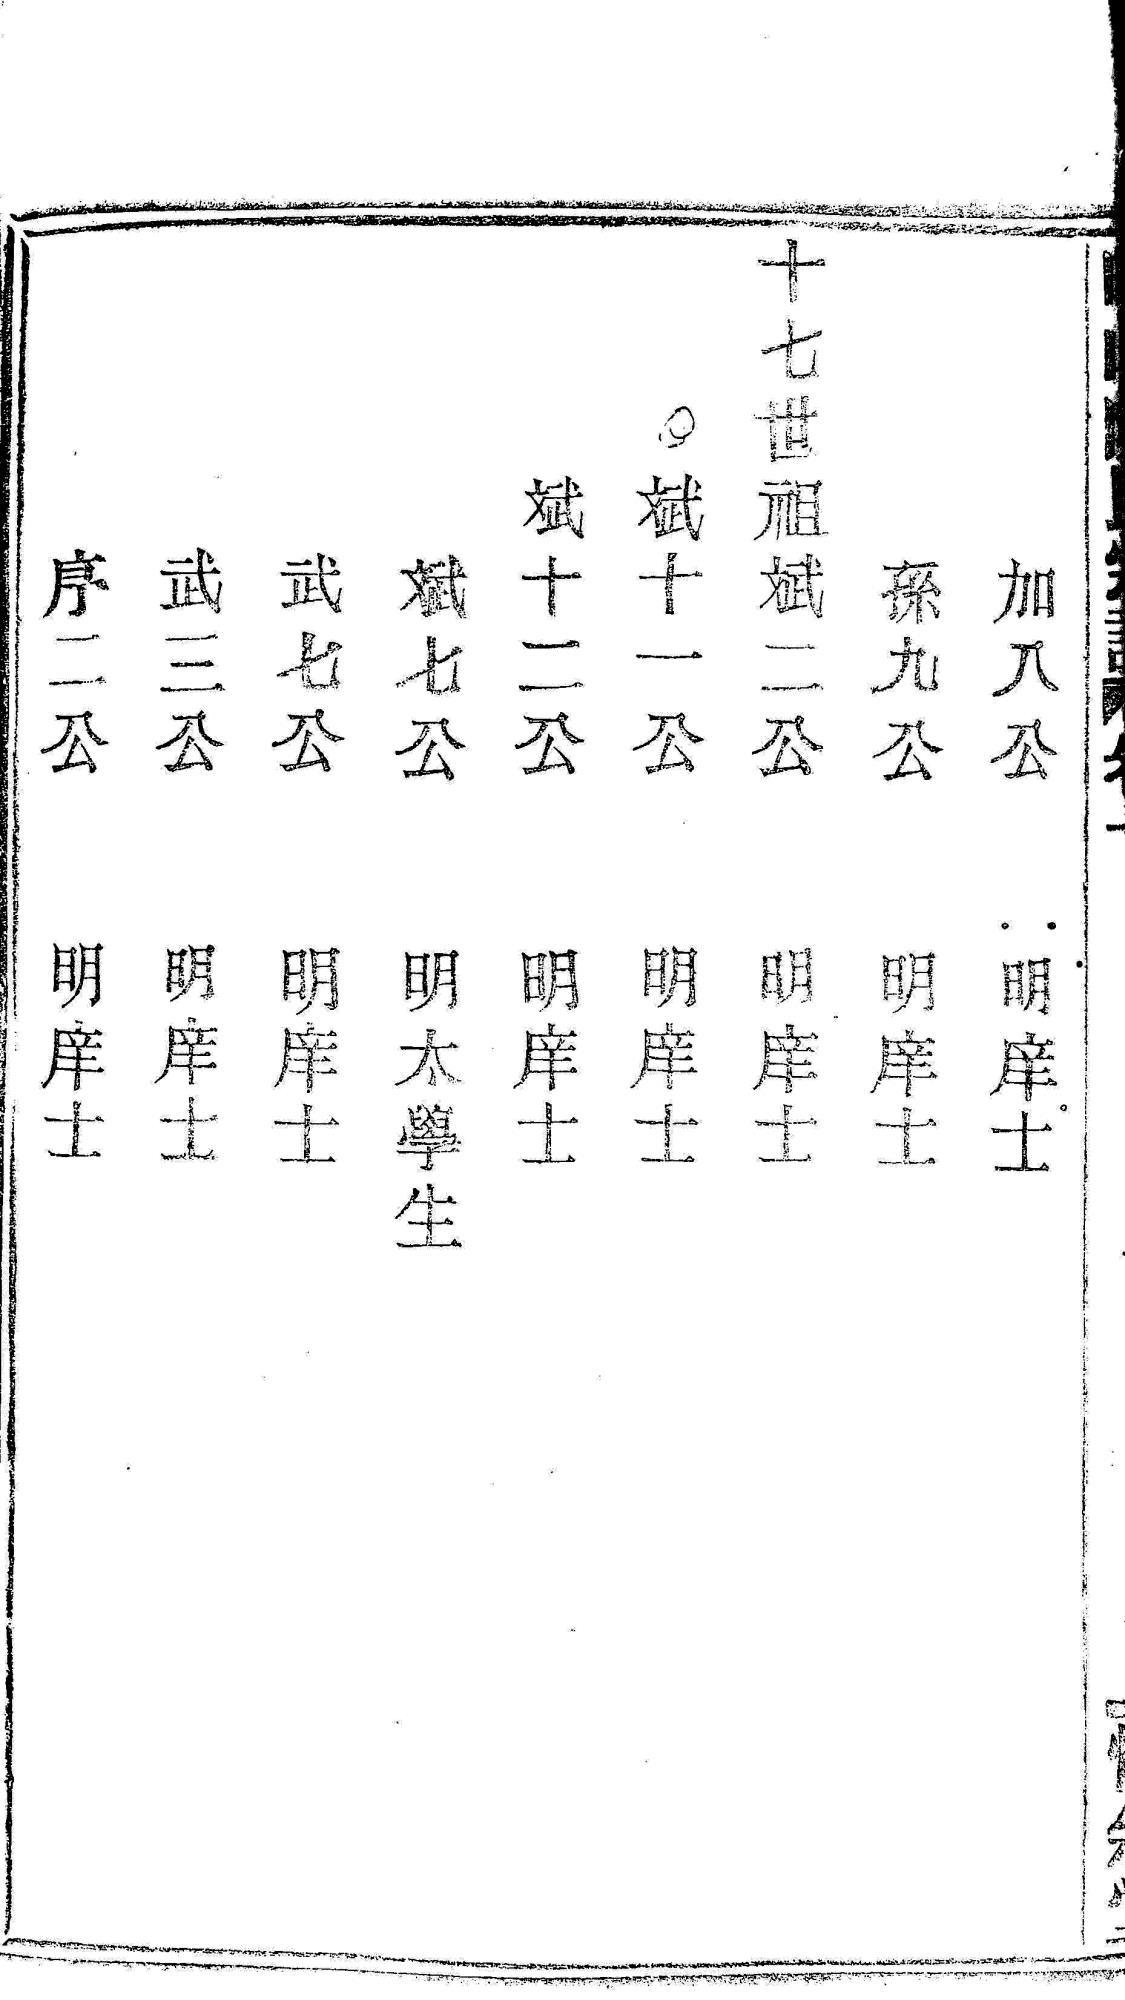 加八公　明庠士
孫九公　明庠士
十七世祖斌二公　明庠士
斌十一公　明庠士
斌十二公　明庠士
斌七公　明太學生
武七公　明庠士
武三公　明庠士
序二公　明庠士